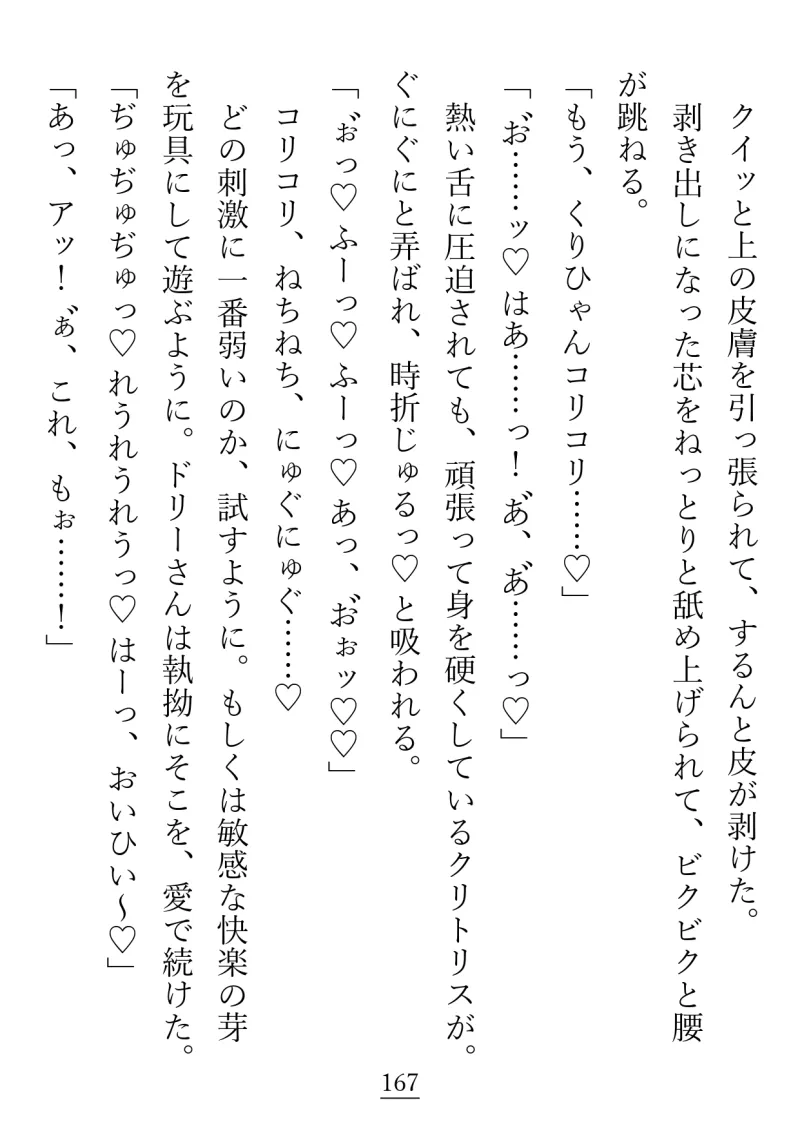 クイッと上の皮膚を引っ張られて、するんと皮が剥けた。
剥き出しになった芯をねっとりと舐め上げられて、ビクビクと腰
が跳ねる。
「もう、くりひゃんコリコリ……♡」
「お゛……ッ♡ はあ……っ！ あ゛、あ゛……っ♡」
熱い舌に圧迫されても、頑張って身を硬くしているクリトリスが。
ぐにぐにと弄ばれ、時折じゅるっ♡ と吸われる。
「ぉ゛っ♡ ふーっ♡ ふーっ♡ あっ、お゛ぉッ♡♡」
コリコリ、ねちねち、にゅぐにゅぐ……♡
どの刺激に一番弱いのか、試すように。もしくは敏感な快楽の芽
を玩具にして遊ぶように。ドリーさんは執拗にそこを、愛で続けた。
「ぢゅぢゅぢゅっ♡ れうれうれうっ♡ はーっ、おいひい〜♡」
「あっ、アッ！ ぁ゛、これ、もぉ……！」
167